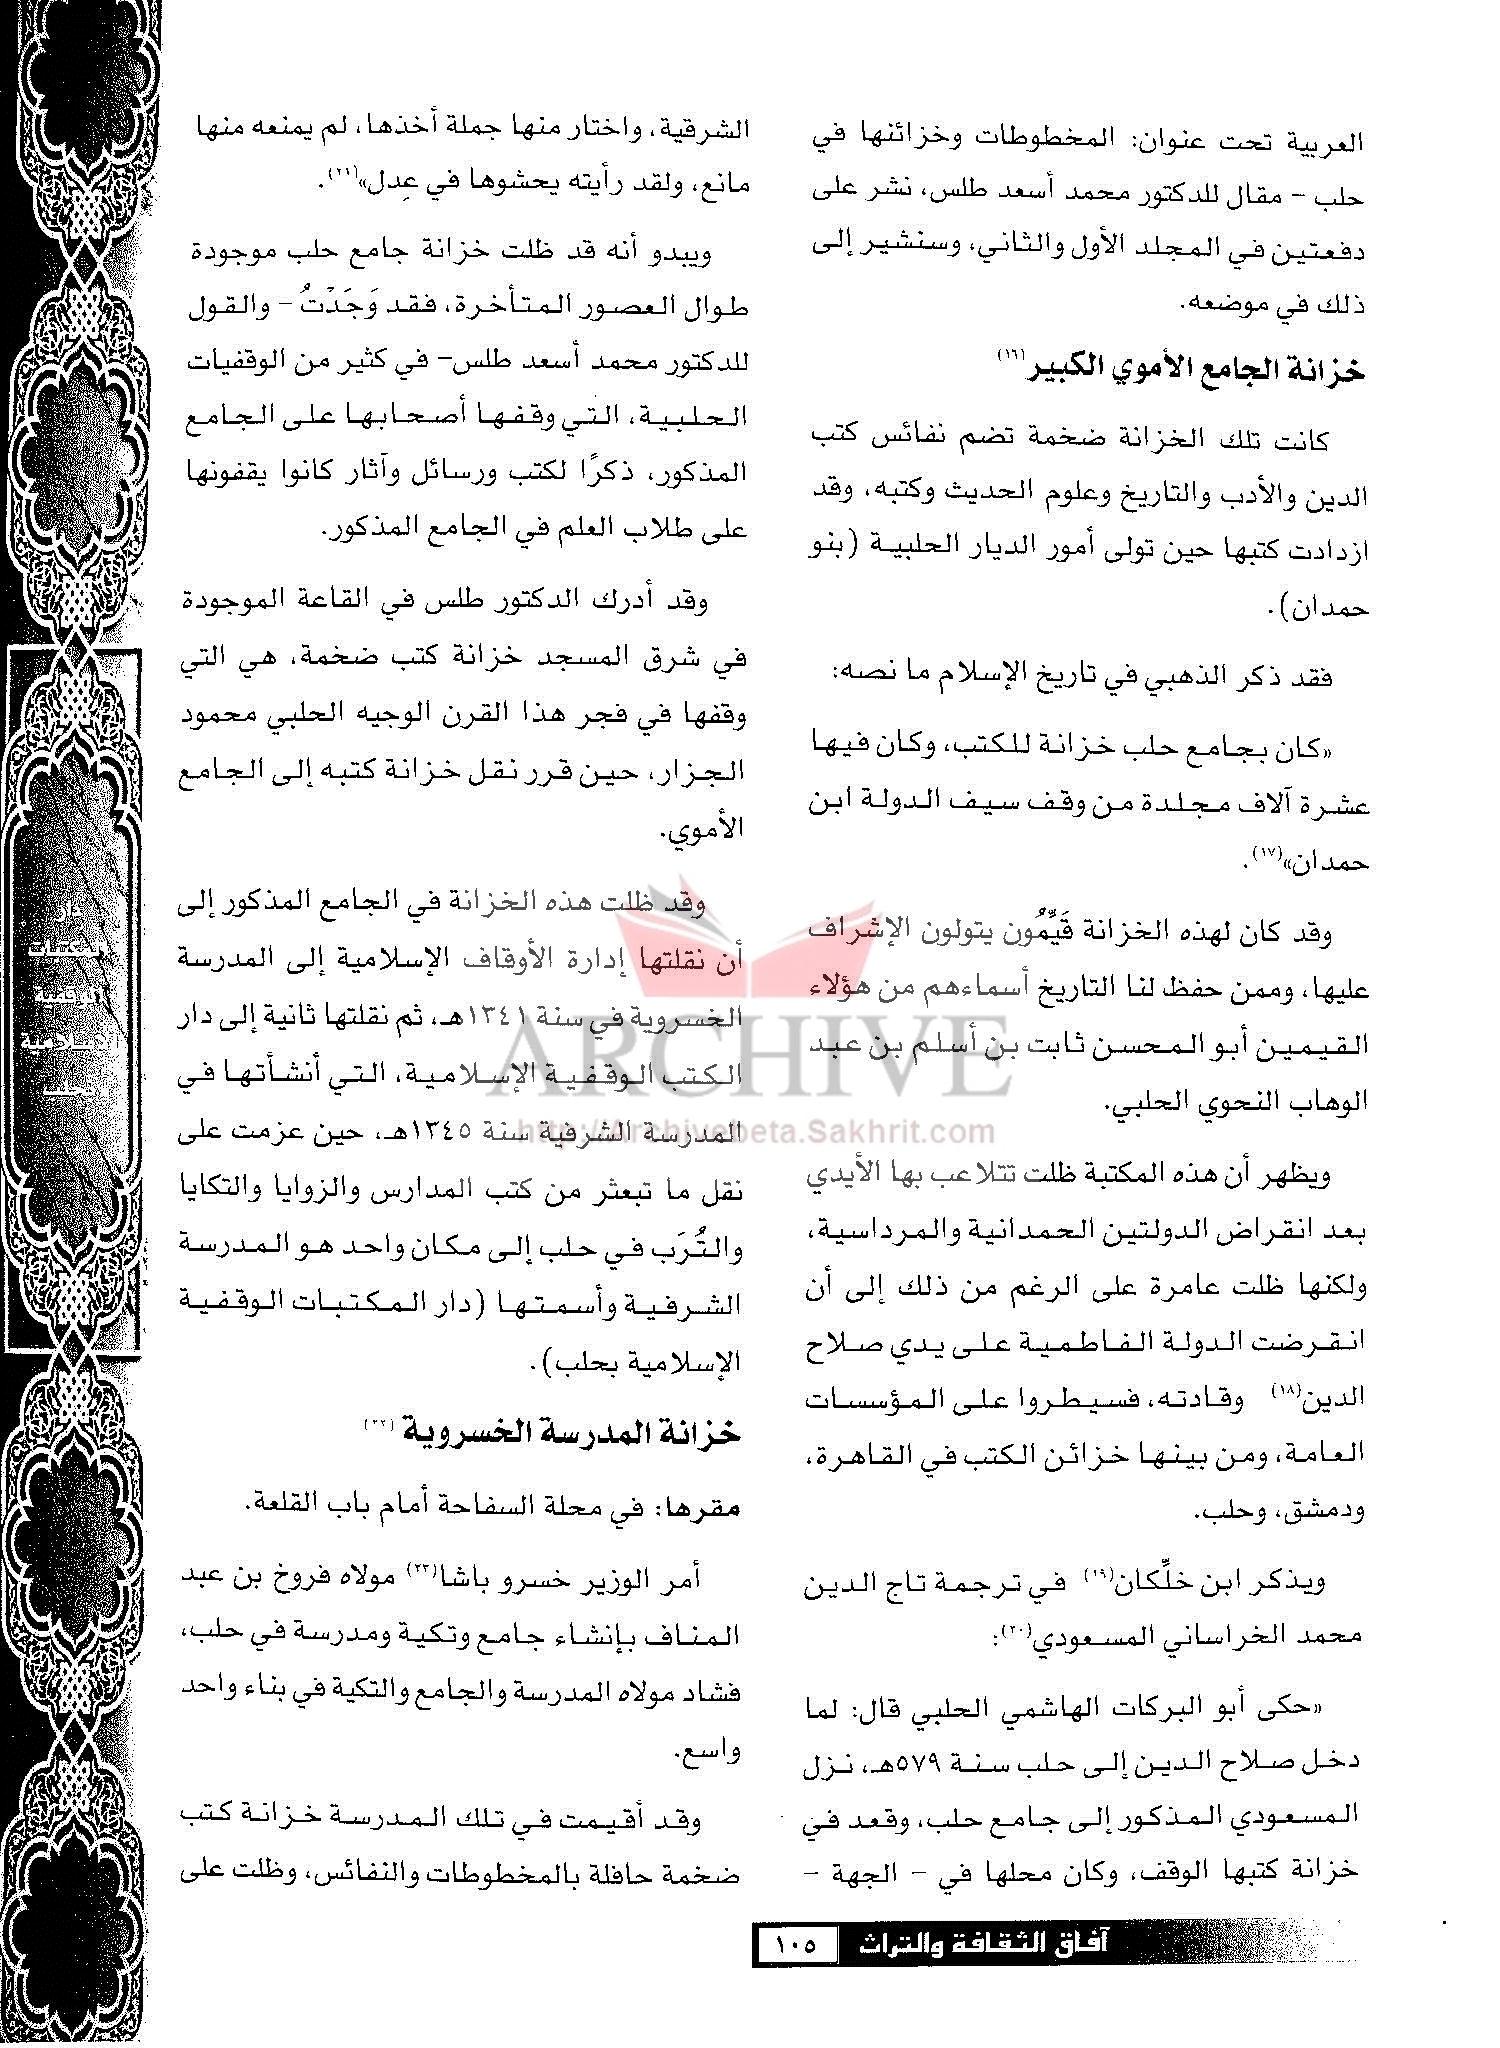 العربية تحت عنوان: المخطوطات وخزائنها في
حلب - مقال للدكتور محمد أسعد طلس، نشر على
دفعتين في المجلد الأول والثاني، وسنشير إلى
ذلك في موضعه.
خزانة الجامع الأموي الكبير(١٦)
كانت تلك الخزانة ضخمة تضم نفائس كتب
الدين والأدب والتاريخ وعلوم الحديث وكتبه، وقد
ازدادت كتبها حين تولى أمور الديار الحلبية (بنو
حمدان).
فقد ذكر الذهبي في تاريخ الإسلام ما نصه:
«كان بجامع حلب خزانة للكتب، وكان فيها
عشرة آلاف مجلدة من وقف سيف الدولة ابن
حمدان»(١٧).
وقد كان لهذه الخزانة قَيِّمُون يتولون الإشراف
عليها، وممن حفظ لنا التاريخ أسماءهم من هؤلاء
القيمين أبو المحسن ثابت بن أسلم بن عبد
الوهاب النحوي الحلبي.
ويظهر أن هذه المكتبة ظلت تتلاعب بها الأيدي
بعد انقراض الدولتين الحمدانية والمرداسية،
ولكنها ظلت عامرة على الرغم من ذلك إلى أن
انقرضت الدولة الفاطمية على يدي صلاح
الدين(١٨) وقادته، فسيطروا على المؤسسات
العامة، ومن بينها خزائن الكتب في القاهرة،
ودمشق، وحلب.
ويذكر ابن خلِّكان(١٩) في ترجمة تاج الدين
محمد الخراساني المسعودي(٢٠):
«حكى أبو البركات الهاشمي الحلبي قال: لما
دخل صلاح الدين إلى حلب سنة ٥٧٩هـ، نزل
المسعودي المذكور إلى جامع حلب، وقعد في
خزانة كتبها الوقف، وكان محلها في - الجهة -
الشرقية، واختار منها جملة أخذها، لم يمنعه منها
مانع، ولقد رأيته يحشوها في عِدل»(٢١).
ويبدو أنه قد ظلت خزانة جامع حلب موجودة
طوال العصور المتأخرة، فقد وَجَدْتُ - والقول
للدكتور محمد أسعد طلس- في كثير من الوقفيات
الحلبية، التي وقفها أصحابها على الجامع
المذكور، ذكرًا لكتب ورسائل وآثار كانوا يقفونها
على طلاب العلم في الجامع المذكور.
وقد أدرك الدكتور طلس في القاعة الموجودة
في شرق المسجد خزانة كتب ضخمة، هي التي
وقفها في فجر هذا القرن الوجيه الحلبي محمود
الجزار، حين قرر نقل خزانة كتبه إلى الجامع
الأموي.
وقد ظلت هذه الخزانة في الجامع المذكور إلى
أن نقلتها إدارة الأوقاف الإسلامية إلى المدرسة
الخسروية في سنة ١٣٤١هـ، ثم نقلتها ثانية إلى دار
الكتب الوقفية الإسلامية، التي أنشأتها في
المدرسة الشرفية سنة ١٣٤٥هـ، حين عزمت على
نقل ما تبعثر من كتب المدارس والزوايا والتكايا
والتُرَب في حلب إلى مكان واحد هو المدرسة
الشرفية وأسمتها (دار المكتبات الوقفية
الإسلامية بحلب).
خزانة المدرسة الخسروية(٢٢)
مقرها: في محلة السفاحة أمام باب القلعة.
أمر الوزير خسرو باشا(٢٣) مولاه فروخ بن عبد
المناف بإنشاء جامع وتكية ومدرسة في حلب،
فشاد مولاه المدرسة والجامع والتكية في بناء واحد
واسع.
وقد أقيمت في تلك المدرسة خزانة كتب
ضخمة حافلة بالمخطوطات والنفائس، وظلت على
دار
المكتبات
الوقفية
الإسلامية
بحلب
ARCHIVE
http://Archivebeta.Sakhrit.com
آفاق الثقافة والتراث ١٠٥